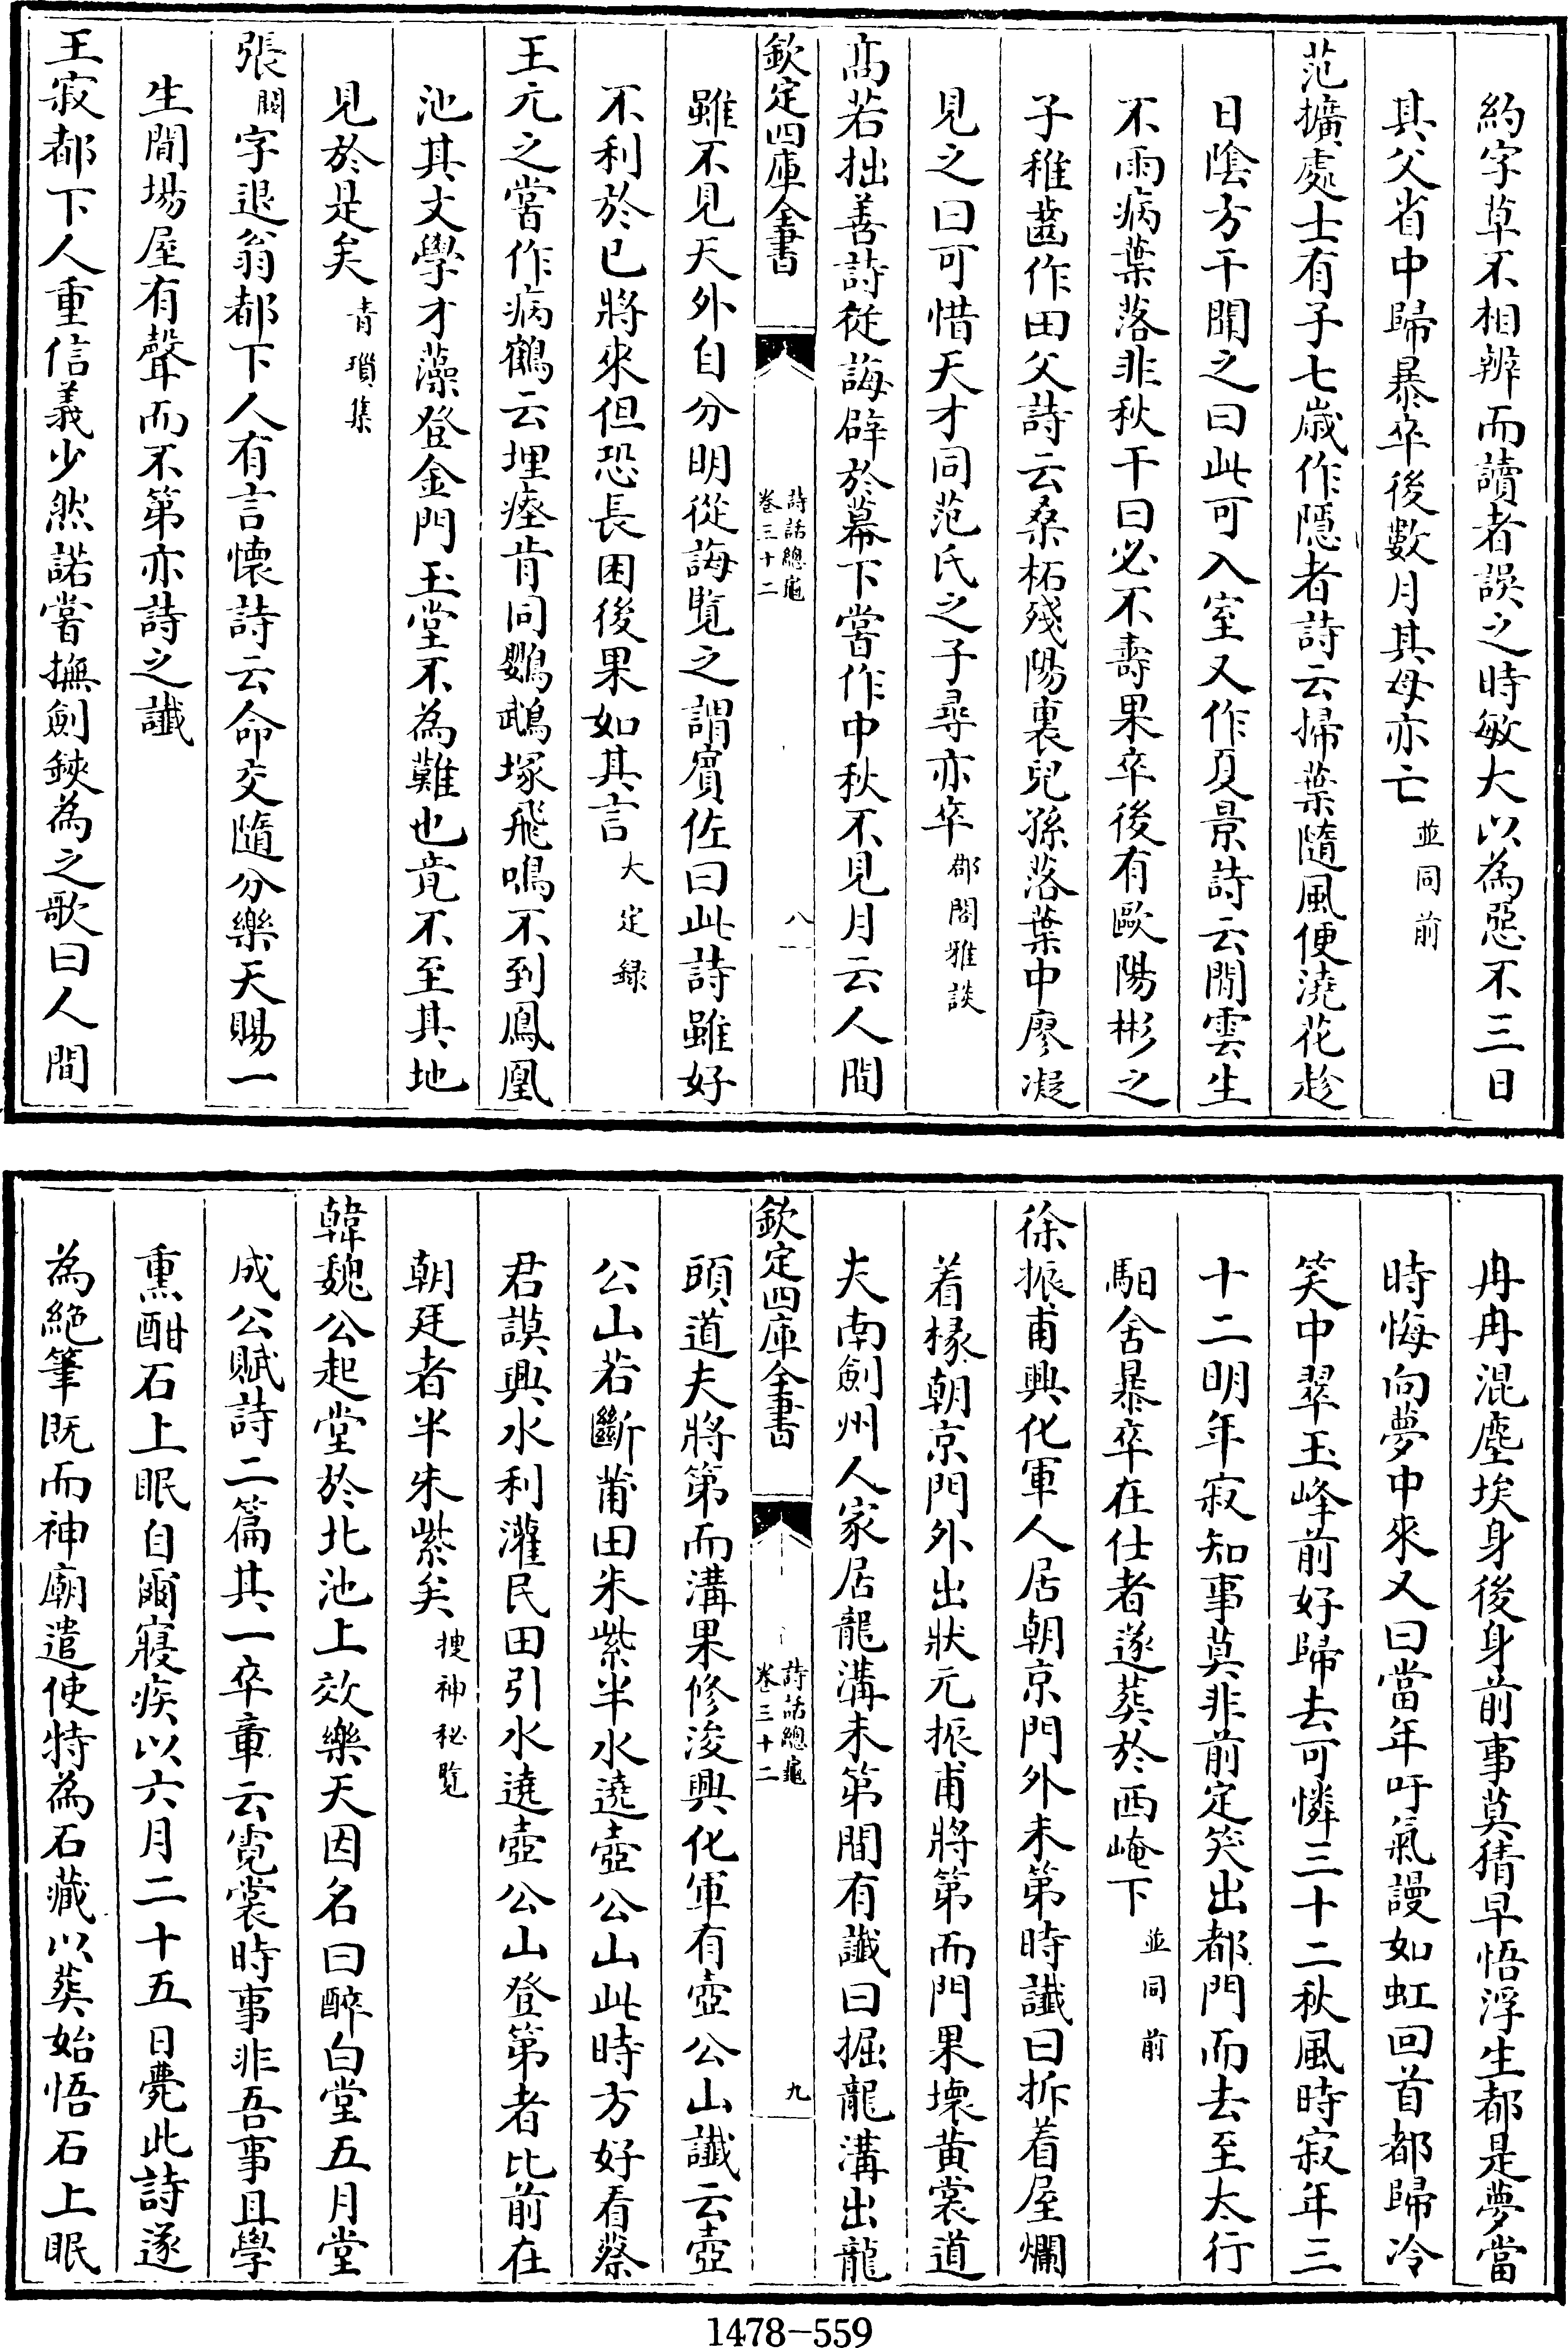 約字草不相辨而讀者誤之時敏大以為惡不三日
其父省中歸暴卒後數月其母亦亡並同前
范攄處士有子七歲作隱者詩云掃葉隨風便澆花趁
日陰方干聞之曰此可入室又作夏景詩云閒雲生
不雨病葉落非秋干曰必不壽果卒後有歐陽彬之
子稚齒作田父詩云桑柘殘陽裏兒孫落葉中廖凝
見之曰可惜天才同范氏之子尋亦卒郡閣雅談
高若拙善詩從誨辟於幕下嘗作中秋不見月云人間
欽定四庫全書
詩話總龜
卷三十二
八
雖不見天外自分明從誨覽之謂賓佐曰此詩雖好
不利於已將來但恐長困後果如其言大定録
王元之嘗作病鶴云埋瘞肯同鸚鵡塚飛鳴不到鳳凰
池其文學才藻登金門玉堂不為難也竟不至其地
見於是矣青瑣集
張闕字退翁都下人有言懷詩云命交隨分樂天賜一
生閒場屋有聲而不第亦詩之讖
王寂都下人重信義少然諾嘗撫劍鋏為之歌曰人間
冉冉混塵埃身後身前事莫猜早悟浮生都是夢當
時悔向夢中來又曰當年吁氣謾如虹回首都歸冷
笑中翠玉峰前好歸去可憐三十二秋風時寂年三
十二明年寂知事莫非前定笑出都門而去至太行
馹舍暴卒在仕者遂葬於西崦下並同前
徐振甫興化軍人居朝京門外未第時讖曰拆着屋爛
着椽朝京門外出狀元振甫將第而門果壞黄裳道
夫南劍州人家居龍溝未第間有讖曰掘龍溝出龍
欽定四庫全書
詩話總龜
卷三十二
九
頭道夫將第而溝果修浚興化軍有壺公山讖云壺
公山若斷莆田朱紫半水遶壺公山此時方好看蔡
君謨興水利灌民田引水遶壺公山登第者比前在
朝廷者半朱紫矣搜神秘覽
韓魏公起堂於北池上效樂天因名曰醉白堂五月堂
成公賦詩二篇其一卒章云霓裳時事非吾事且學
熏酣石上眠自爾寢疾以六月二十五日薨此詩遂
為絶筆既而神廟遣使特為石藏以葬始悟石上眠
1478-559